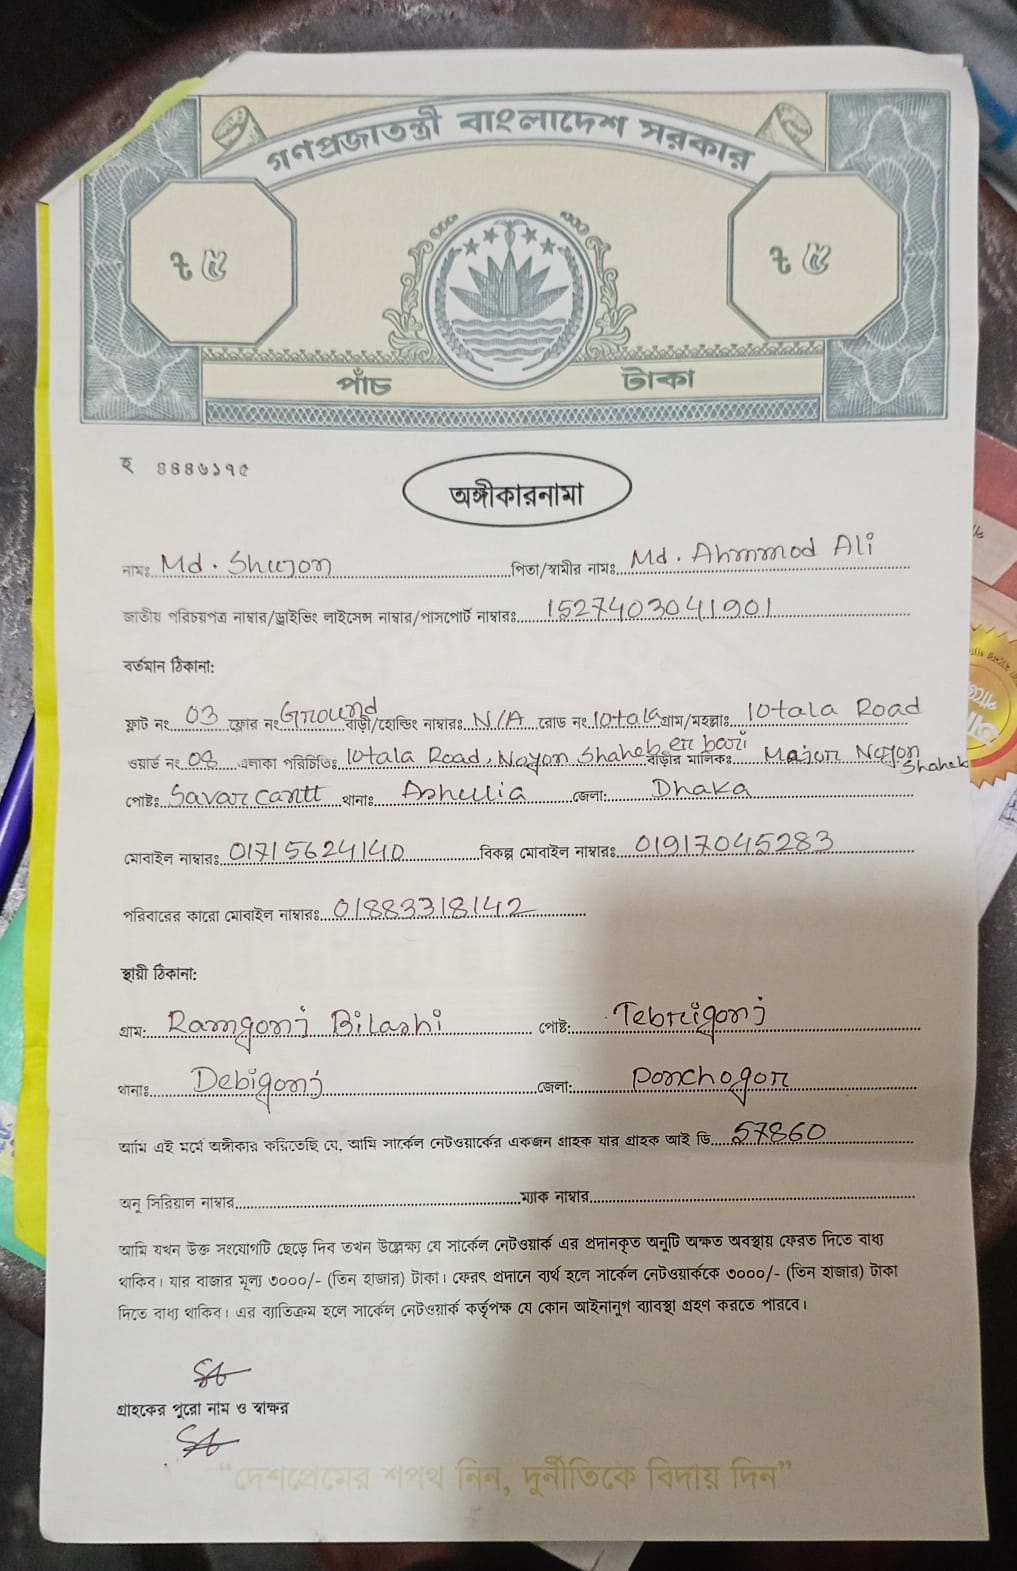 গণপ্রজাতন্ত্রী বাংলাদেশ সরকার
৳ ৫ ৳ ৫
পাঁচ টাকা
হ ৪৪৪৬১৭৫
অঙ্গীকারনামা
নামঃ Md. Shujon পিতা/স্বামীর নামঃ Md. Ahmmod Ali
জাতীয় পরিচয়পত্র নাম্বার/ড্রাইভিং লাইসেন্স নাম্বার/পাসপোর্ট নাম্বারঃ 1527403041901
বর্তমান ঠিকানা:
ফ্লাট নং 03 ফ্লোর নং Ground বাড়ী/হোল্ডিং নাম্বারঃ N/A রোড নং 10tala গ্রাম/মহল্লাঃ 10tala Road
ওয়ার্ড নং 08 এলাকা পরিচিতিঃ 10tala Road, Nayon Shaheb er bari বাড়ীর মালিকঃ Major Nayon Shaheb
পোষ্টঃ Savar cantt থানাঃ Ashulia জেলা: Dhaka
মোবাইল নাম্বারঃ 01715624140 বিকল্প মোবাইল নাম্বারঃ 01917045283
পরিবারের কারো মোবাইল নাম্বারঃ 01883318142
স্থায়ী ঠিকানা:
গ্রাম: Ramgonj Bilashi পোষ্ট: Tebrigonj
থানাঃ Debigonj জেলা: Ponchogor
আমি এই মর্মে অঙ্গীকার করিতেছি যে, আমি সার্কেল নেটওয়ার্কের একজন গ্রাহক যার গ্রাহক আই ডি 57860
অনু সিরিয়াল নাম্বার ম্যাক নাম্বার
আমি যখন উক্ত সংযোগটি ছেড়ে দিব তখন উল্লেক্ষ্য যে সার্কেল নেটওয়ার্ক এর প্রদানকৃত অনুটি অক্ষত অবস্থায় ফেরত দিতে বাধ্য
থাকিব। যার বাজার মূল্য ৩০০০/- (তিন হাজার) টাকা। ফেরৎ প্রদানে ব্যর্থ হলে সার্কেল নেটওয়ার্ককে ৩০০০/- (তিন হাজার) টাকা
দিতে বাধ্য থাকিব। এর ব্যাতিক্রম হলে সার্কেল নেটওয়ার্ক কর্তৃপক্ষ যে কোন আইনানুগ ব্যাবস্থা গ্রহণ করতে পারবে।
গ্রাহকের পুরো নাম ও স্বাক্ষর
“দেশপ্রেমের শপথ নিন, দুর্নীতিকে বিদায় দিন”